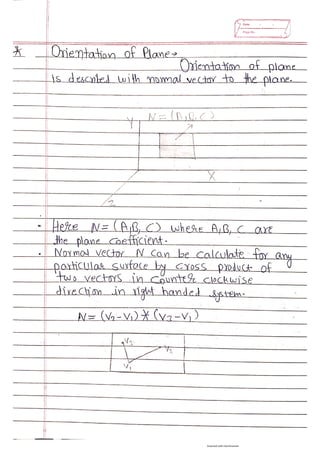 * Orientation of Plane →
Orientation of plane
is described with normal vector to the plane.
N = (A, B, C)
Y
X
Z
• Here N = (A, B, C) where A, B, C are
the plane coefficient.
• Normal vector N can be calculate for any
particular surface by cross product of
two vectors in counter clockwise
direction in right handed system.
N = (V2 - V1) * (V3 - V1)
V3
V2
V1